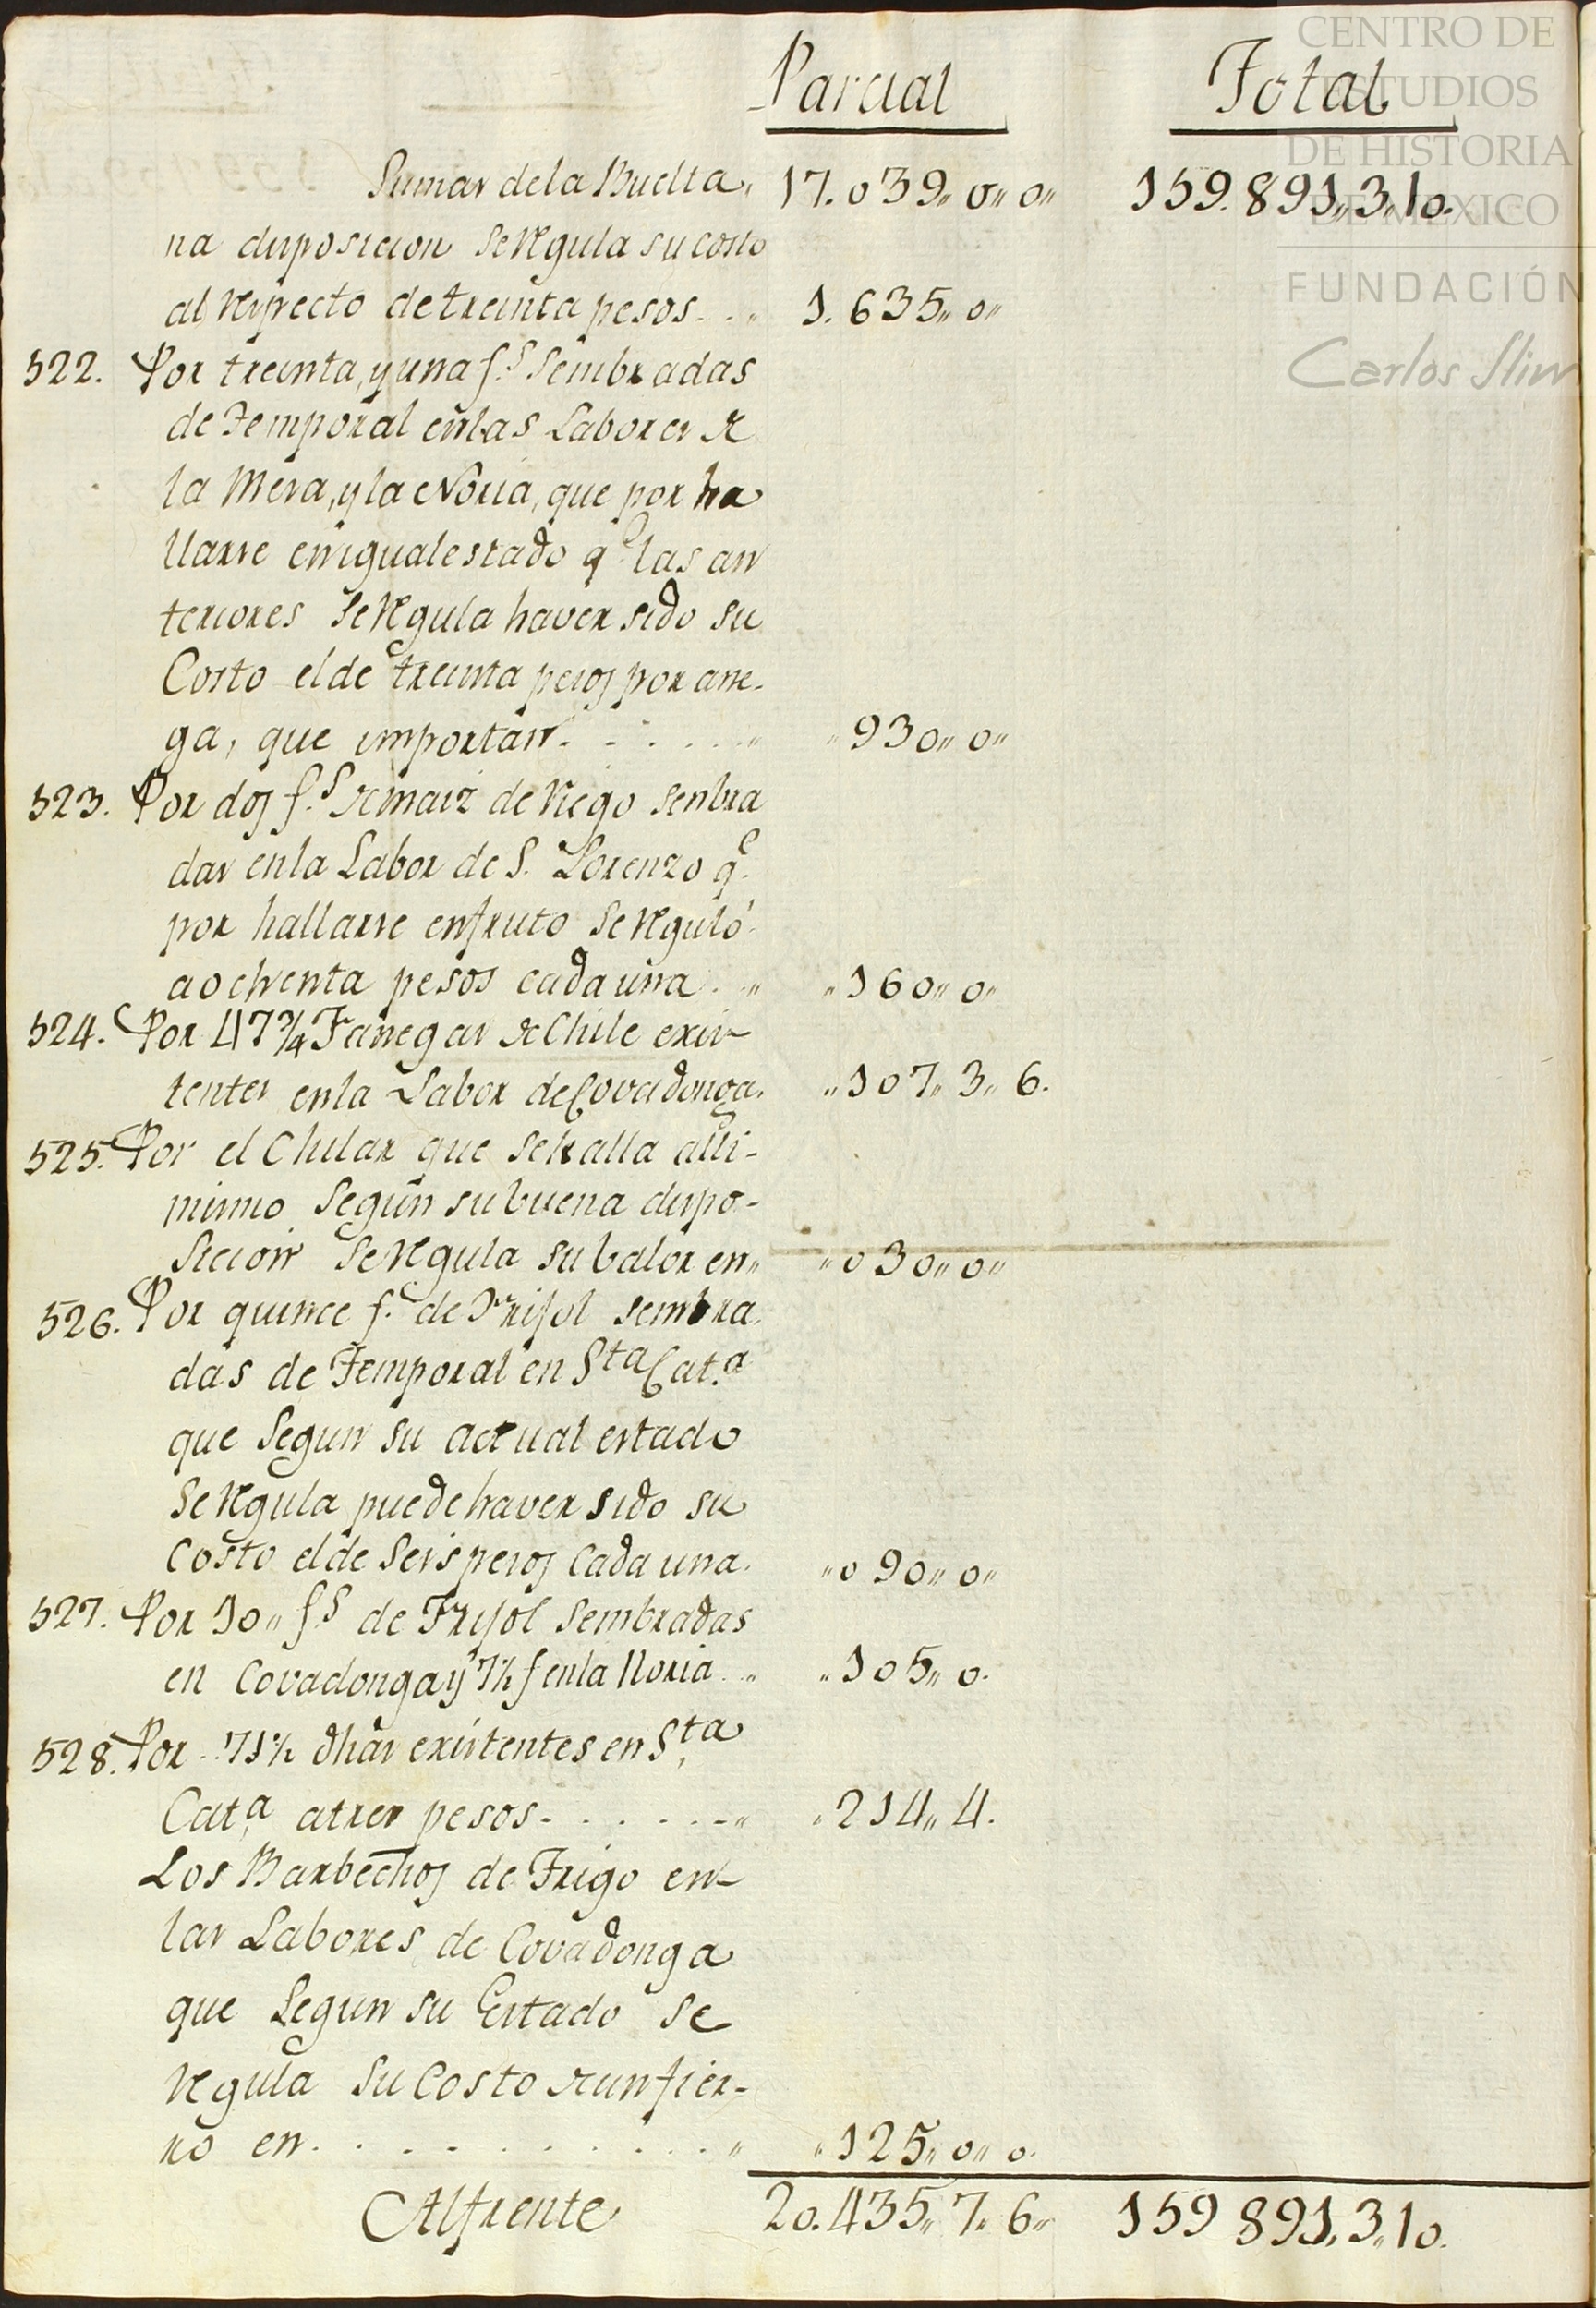 Parcial Total
Sumas de la Buelta, 17.039,, 0,, 0,, 159.891,, 3,, 10.
na disposicion se regula su costo
al respecto de treinta pesos. . ,, 1.635,, 0,,
522. Por treinta, y una f.s Sembradas
de Temporal en las Labores de
la Mesa, y la Noria, que por ha
llarse en igual estado q.e las an
teriores se regula haver sido su
Costo el de treinta pesos por ane-
ga, que importan. . . . . . ,, ,, 930,, 0,,
523. Por dos f.s de maiz de Riego senbra
das en la Labor de S. Lorenzo q.e
por hallarse en fruto se reguló
a ochenta pesos cada una. . ,, ,, 160,, 0,,
524. Por 47 3/4 Fanegas de Chile exis-
tentes en la Labor de Covadonga. ,, 107,, 3,, 6.
525. Por el Chilar que se halla alli-
mismo Segun su buena dispo-
sicion se regula su balor en,, ,, 030,, 0,,
526. Por quince f. de Frijol sembra
das de Temporal en Sta Cat.a
que Segun su actual estado
se regula puede haver sido su
Costo el de Seis pesos Cada una. ,, 090,, 0,,
527. Por 10,, f.s de Frijol Sembradas
en Covadonga y 7 1/2 f en la Noria. ,, ,, 105,, 0.
528. Por 71 1/2 dhas existentes en Sta
Cat.a a tres pesos. . . . . . ,, ,, 214,, 4.
Los Barbechos de Trigo en-
las Labores de Covadonga
que Segun su Estado se
regula su Costo de un fier-
ro en. . . . . . . . . . . ,, ,, 125,, 0,, 0.
Alfrente 20.435,, 7,, 6,, 159 891,, 3,, 10.
CENTRO DE
ESTUDIOS
DE HISTORIA
DE MÉXICO
FUNDACIÓN
Carlos Slim